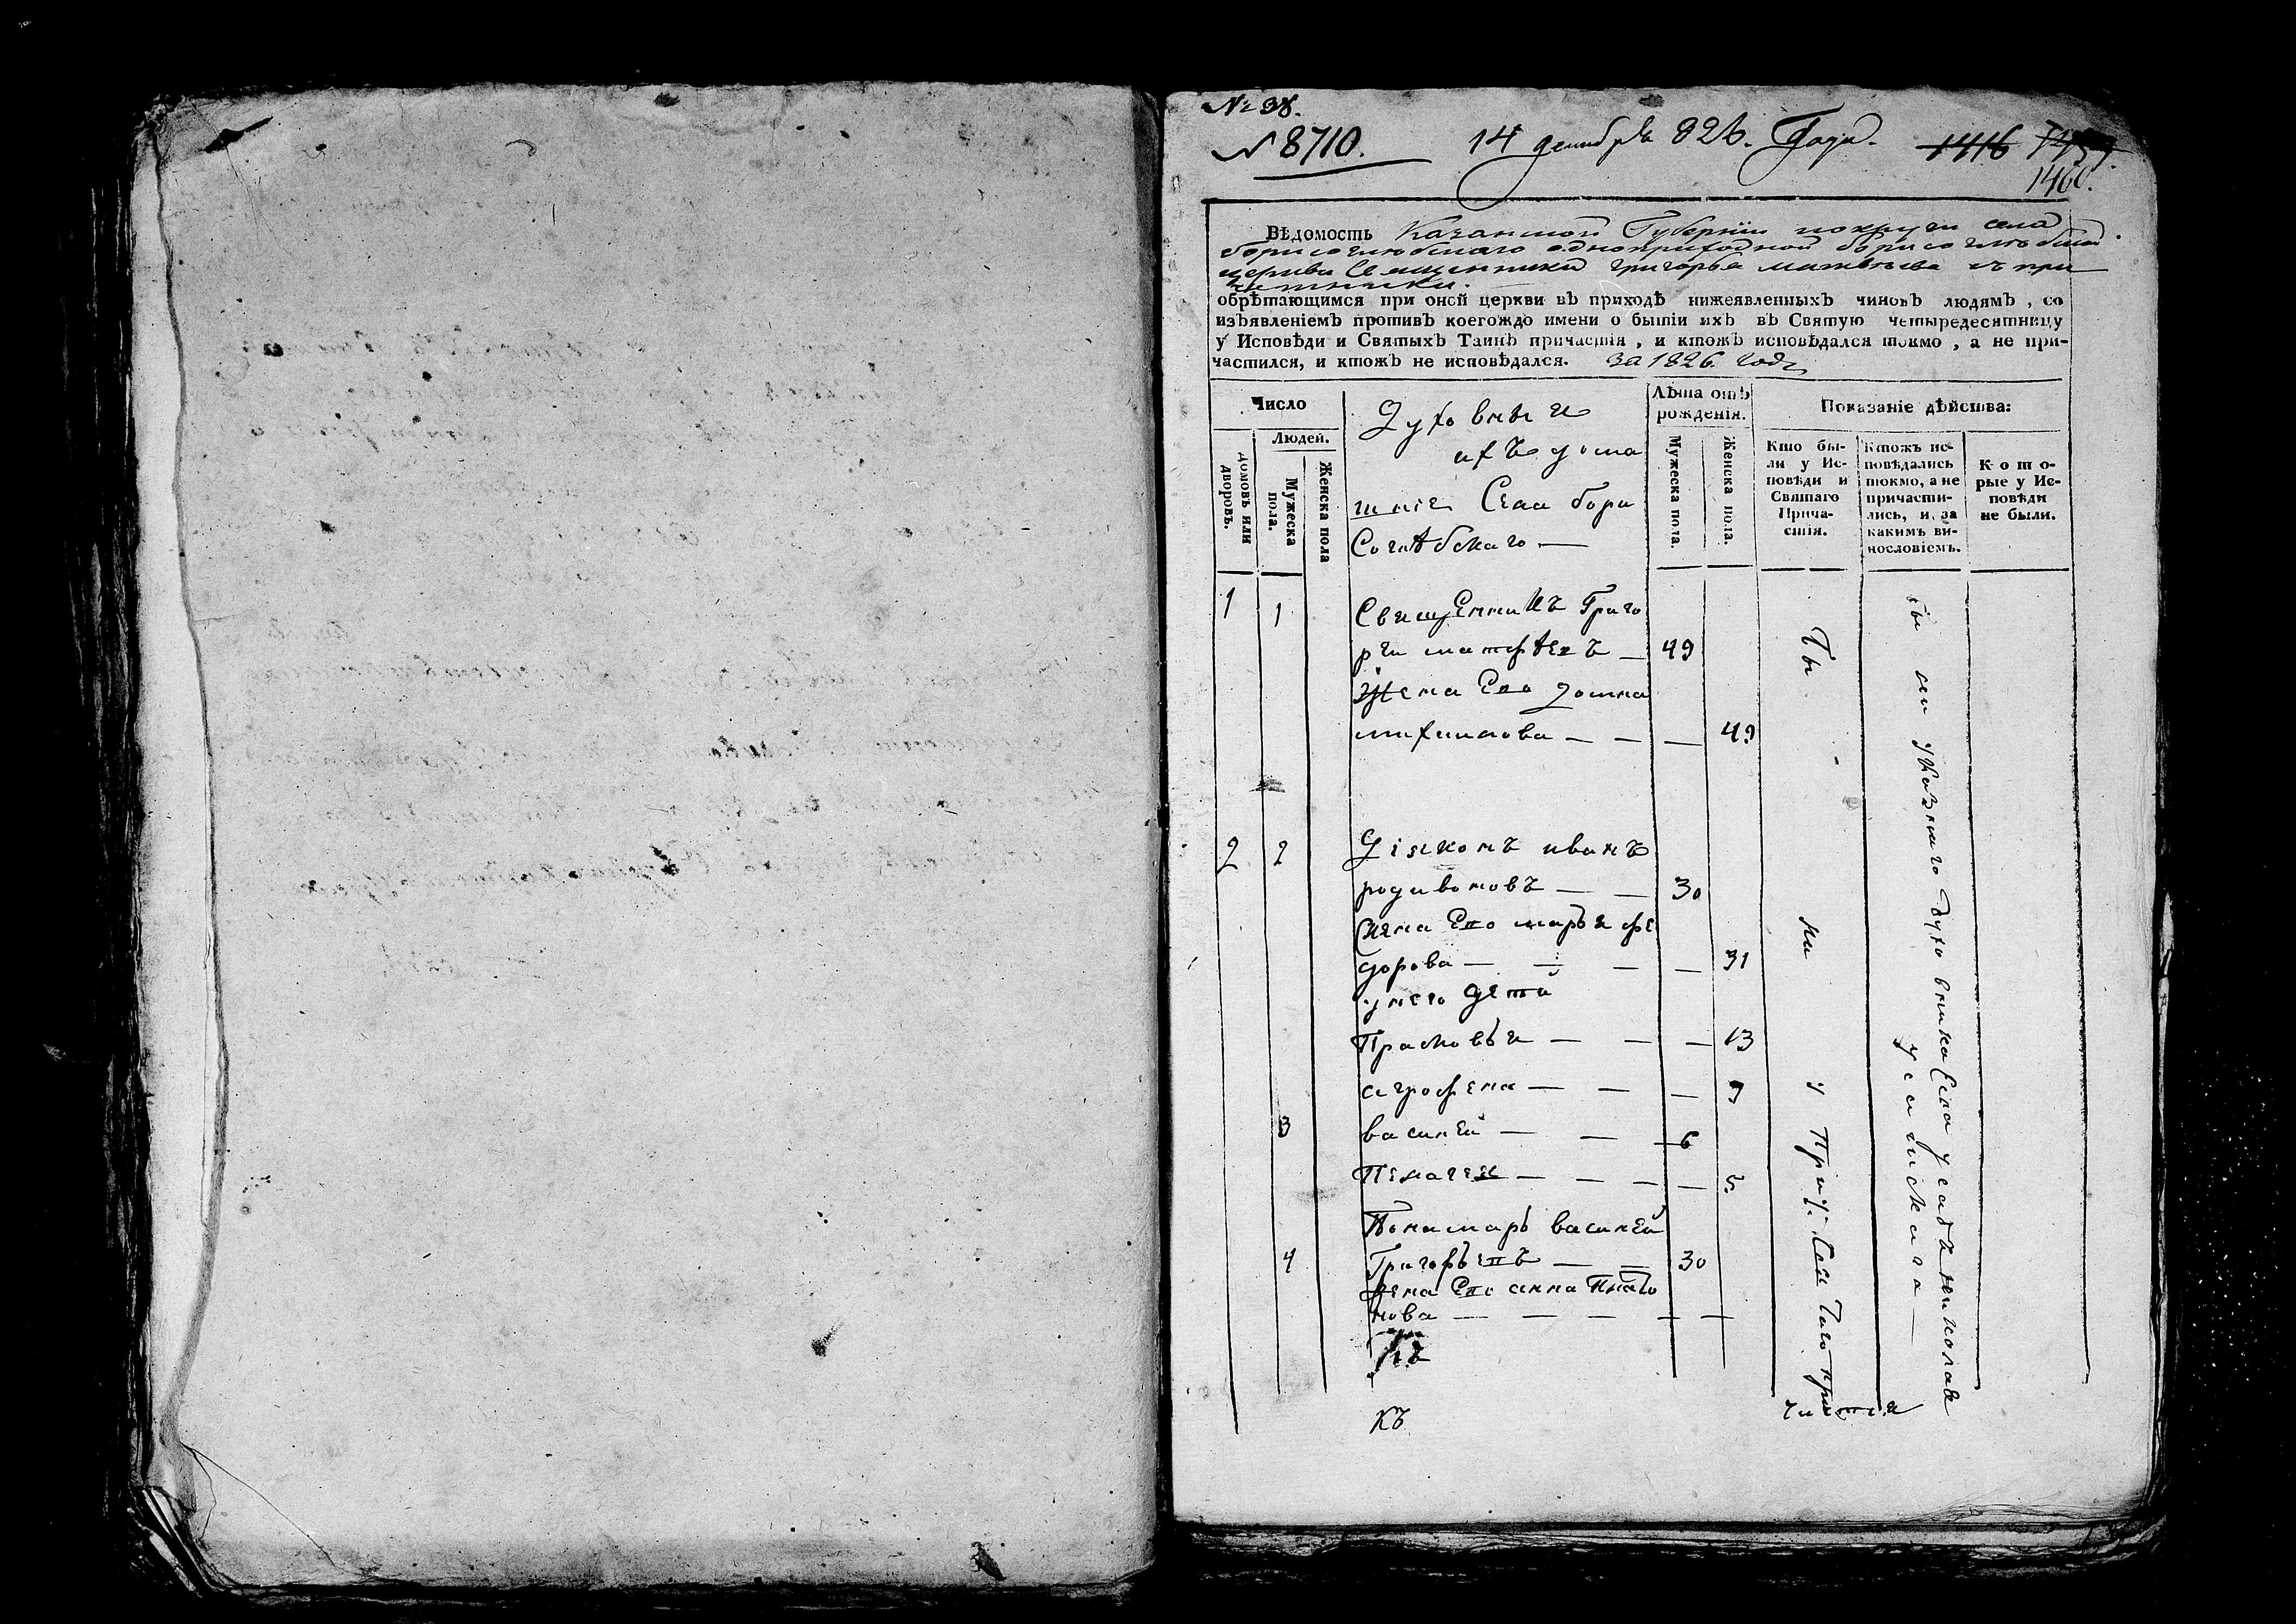 № 38.
№ 8710. 14 декабря 826. Года. 1416
1460.
Вѣдомость Казанской Губернии села
борисоглебскаго одноприходной борисоглебской
церкви Священника григорья матвѣева съ при
четники.
обрѣтающимся при оной церкви въ приходѣ нижеявленныхъ чиновъ людямъ, со
изъявленіемъ противъ коегождо имени о бытіи ихъ въ Святую четыредесятницу
у Исповѣди и Святыхъ Таинъ причастія, и ктожъ исповѣдался токмо, а не при-
частился, и ктожъ не исповѣдался. За 1826 годъ
Число
Людей.
домовъ или дворовъ.
Мужеска пола.
Женска пола
Духовныя
ихъ дома
шніе Села бори
Соглѣбскаго —
Лѣта отъ
рожденія.
Мужеска пола.
Женска пола.
Показаніе дѣйства:
Кто бы-
ли у Ис-
повѣди и
Святаго
Прича-
стія.
Ктожъ ис-
повѣдались
токмо, а не
причасти-
лись, и за
какимъ ви-
нословіемъ.
К о т о-
рые у Ис-
повѣди
не были.
1 1 Священникъ Григо
рей матфѣевъ — 49
Жена Его домна
михаилова — — — 49
2 2 Діяконъ иванъ
родивоновъ — — 30
Жена Его марья фе
дорова — — — — 31
у него дети
Прасковья — — — 13
агрофена — — — 7
3 василей — — — 6
Пелагея — — — — 5
Понамарь василей
4 Григорьевъ — — 30
Жена Его анна Плато
нова — — — — —
Къ
бы
ли
у
Прич. Сея Того при
чистля
бы ли указнаго духовника Села